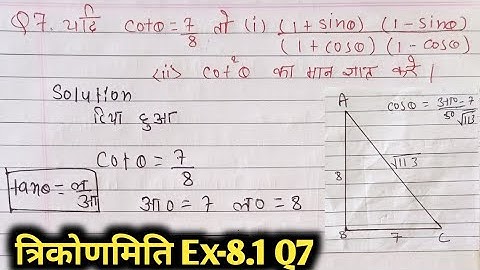 Q7. यदि cotθ = 7/8 तो (i) (1+sinθ) (1-sinθ)
(1+cosθ) (1-cosθ)
(ii) cot²θ का मान ज्ञात करें।
Solution
दिया हुआ
cotθ = 7/8
tanθ = ल/आ
आ० = 7 ल० = 8
A
cosθ = आ० = 7
√113
√113
8
B
7
C
त्रिकोणमिति Ex-8.1 Q7